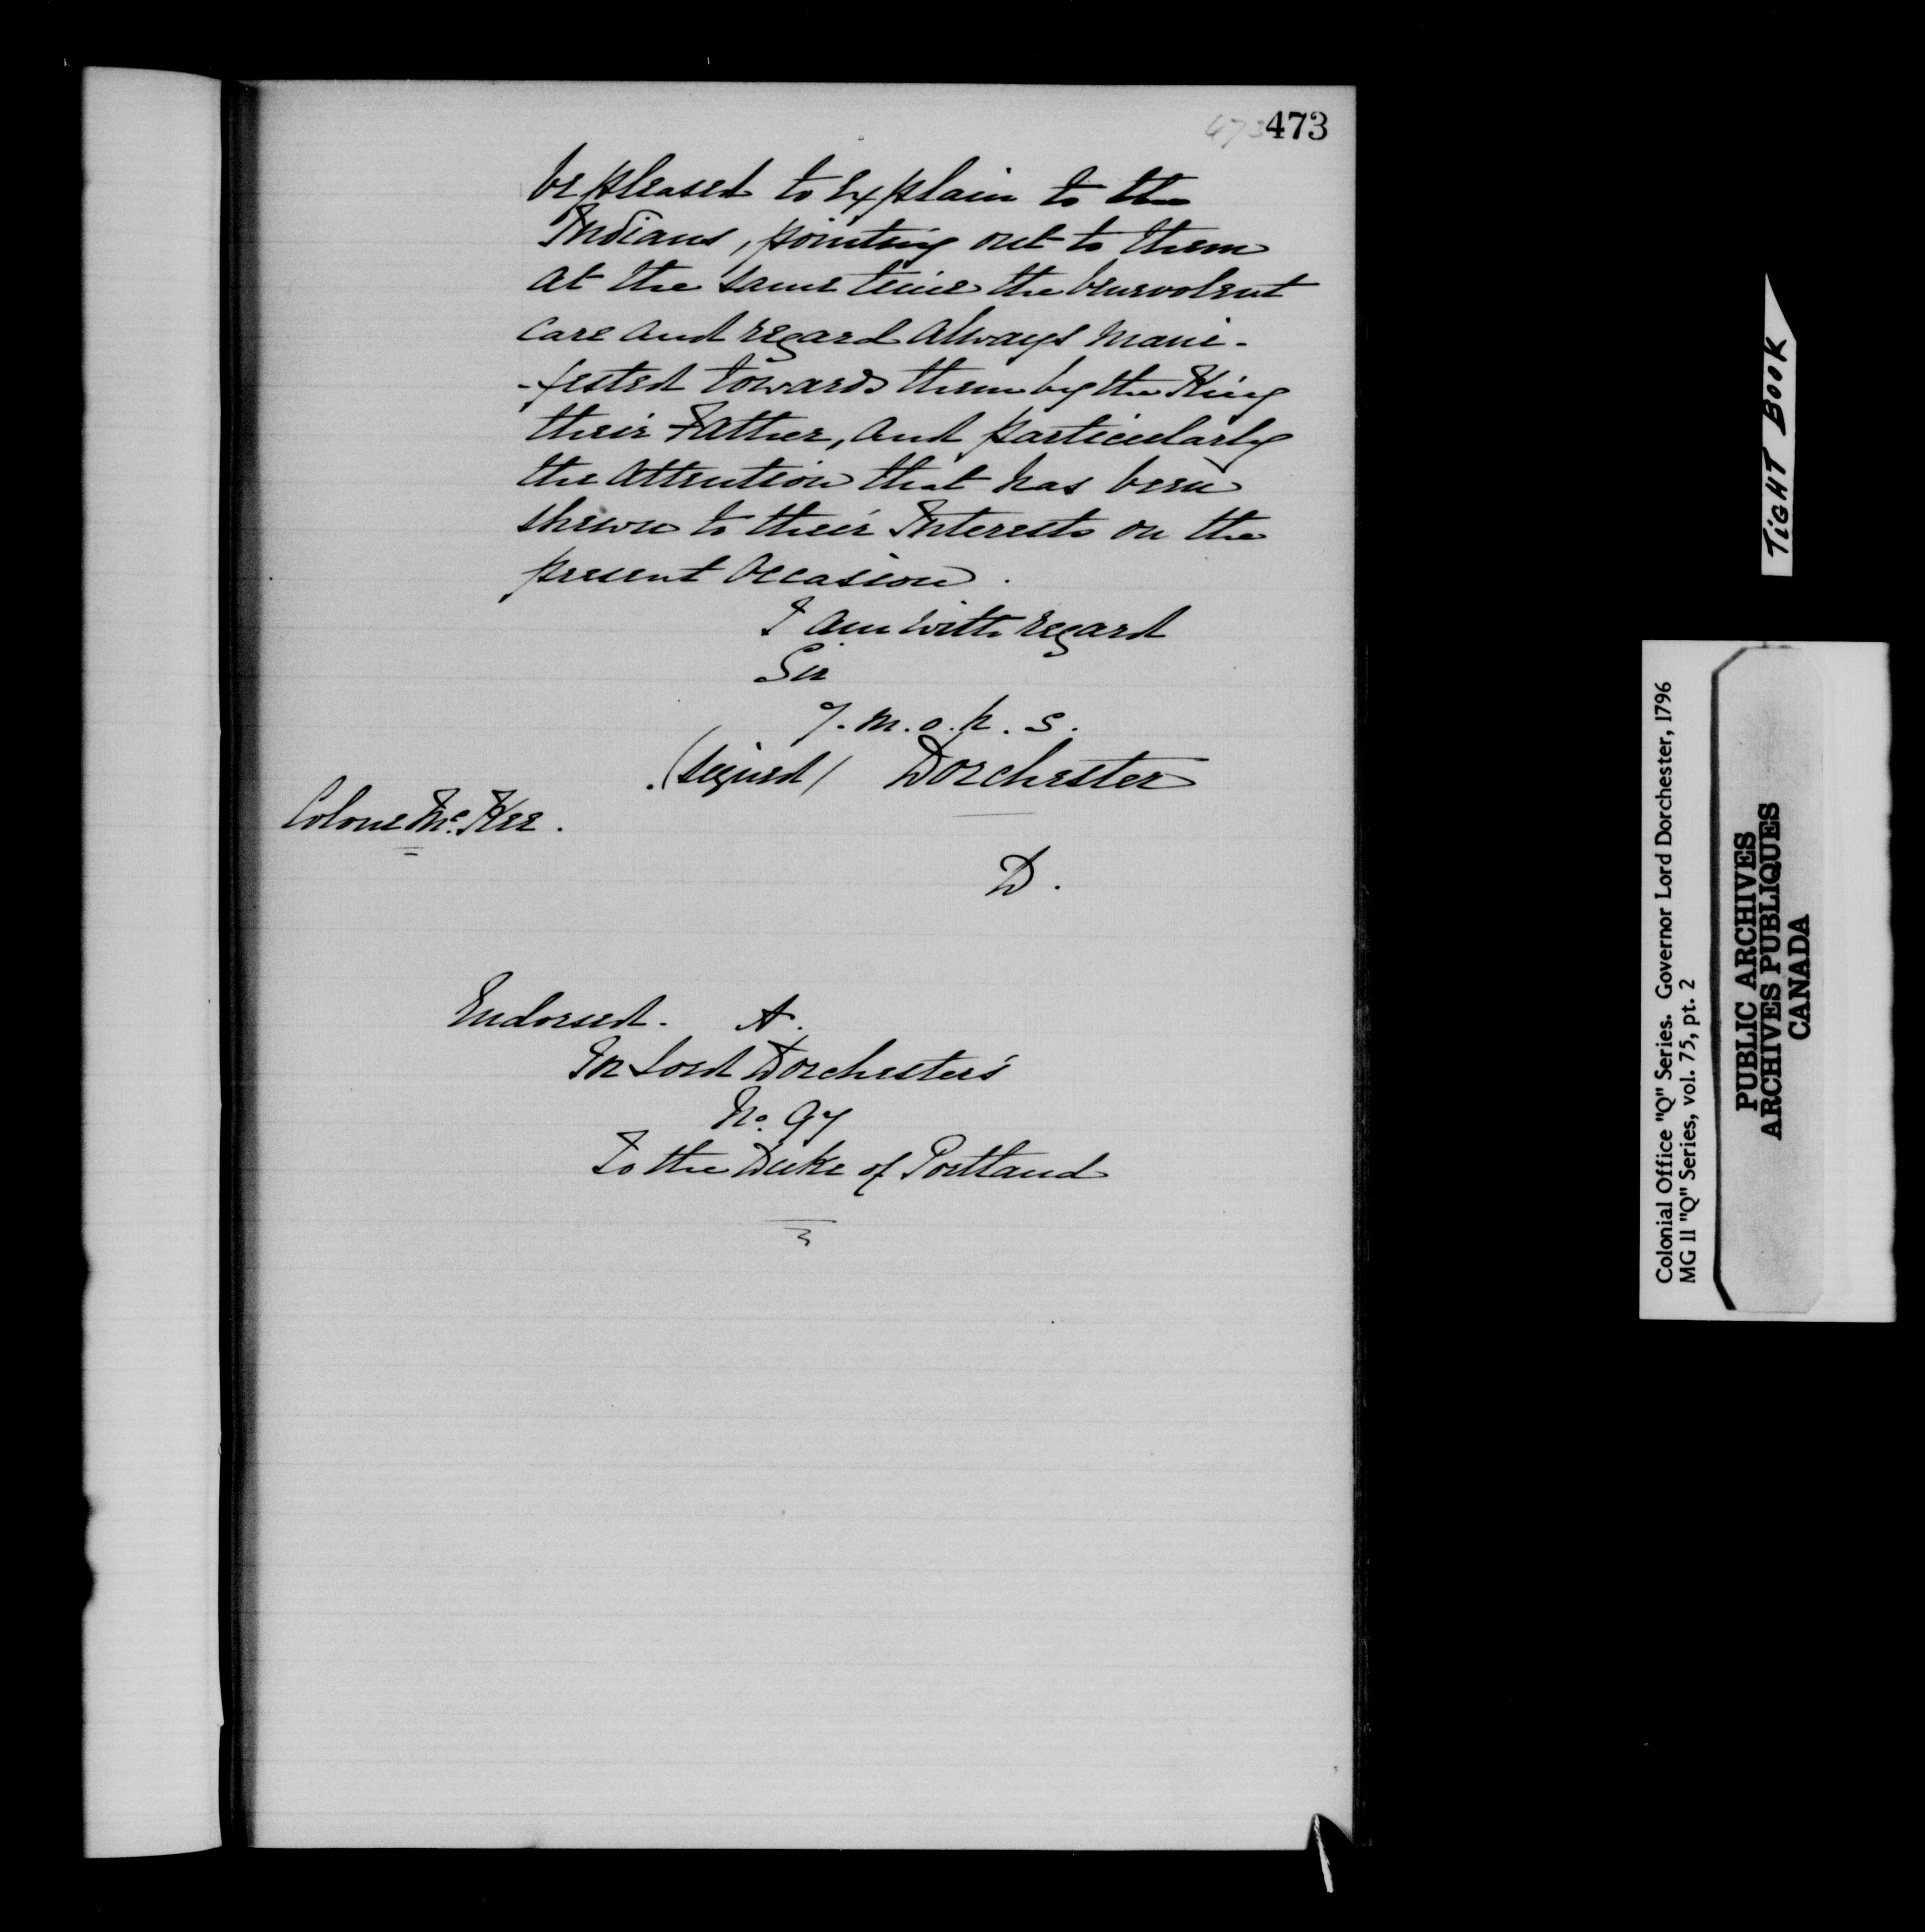 473 473
be pleased to explain to the
Indians, pointing out to them
at the same time the benevolent
care and regard always mani-
-fested towards them by the King
their Father, and particularly
the attention that has been
shewn to their Interests on the
present occasion.
I am with regard
Sir
Y. m. o. h. s.
(signed) Dorchester
Colonel McKee.
D.
Endorsed. A.
In Lord Dorchester's
No. 97
To the Duke of Portland
TIGHT BOOK
Colonial Office "Q" Series. Governor Lord Dorchester, 1796
MG 11 "Q" Series, vol. 75, pt. 2
PUBLIC ARCHIVES
ARCHIVES PUBLIQUES
CANADA